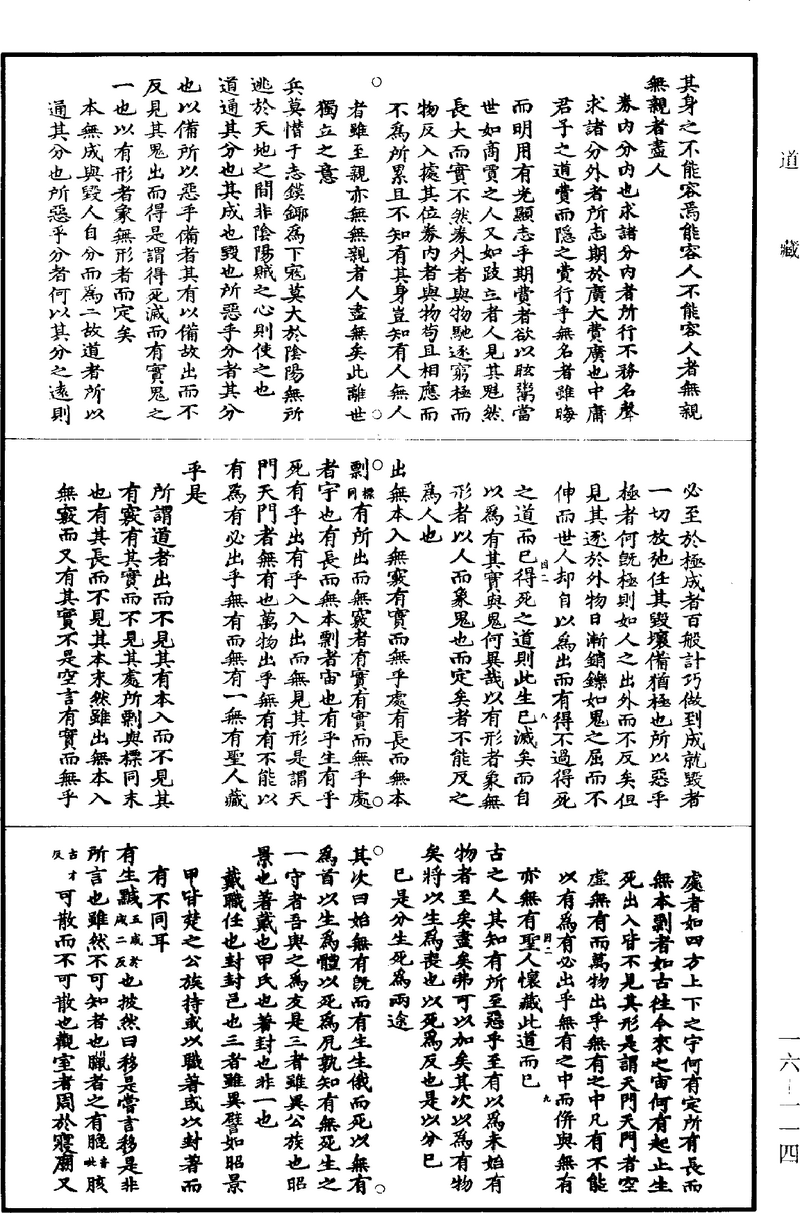 道藏
其身之不能容焉能容人不能容人者無親
無親者盡人
券內分內也求諸分內者所行不務名聲
求諸分外者所志期於廣大費廣也中庸
君子之道費而隱之費行乎無名者雖晦
而明用有光顯志乎期費者欲以眩鬻當
世如商賈之人又如跂立者人見其魁然
長大而實不然券外者與物馳逐窮極而
物反入據其位券內者與物苟且相應而
不為所累且不知有其身豈知有人無人
者雖至親亦無無親者人盡無矣此離世
獨立之意
○兵莫憯于志鏌鋣為下寇莫大於陰陽無所
逃於天地之間非陰陽賊之心則使之也○
道通其分也其成也毀也所惡乎分者其分
也以備所以惡乎備者其有以備故出而不
反見其鬼出而得是謂得死滅而有實鬼之
一也以有形者象無形者而定矣
本無成與毀人自分而為二故道者所以
通其分也所惡乎分者何以其分之遠則
必至於極成者百般計巧做到成就毀者
一切放弛任其毀壞備猶極也所以惡乎
極者何既極則如人之出外而不反矣但
見其逐於外物日漸銷鑠如鬼之屈而不
伸而世人却自以為出而有得不過得死
之道而已得死之道則此生已滅矣而自
以為有其實與鬼何異哉以有形者象無
形者以人而象鬼也而定矣者不能反之
為人也
出無本入無竅有實而無乎處有長而無本
○剽標同有所出而無竅者有實有實而無乎處○
者宇也有長而無本剽者宙也有乎生有乎
死有乎出有乎入入出而無見其形是謂天
門天門者無有也萬物出乎無有有不能以
有為有必出乎無有而無有一無有聖人藏
乎是
所謂道者出而不見其有本入而不見其
有竅有其實而不見其處所剽與標同末
也有其長而不見其本末然雖出無本入
無竅而又有其實不是空言有實而無乎
處者如四方上下之宇何有定所有長而
無本剽者如古往今來之宙何有起止生
死出入皆不見其形是謂天門天門者空
虛無有而萬物出乎無有之中凡有不能
以有為有必出乎無有之中而併與無有
亦無有聖人懷藏此道而已
古之人其知有所至惡乎至有以為未始有
物者至矣盡矣弗可以加矣其次以為有物
矣將以生為喪也以死為反也是以分已
已是分生死為兩途
○其次曰始無有既而有生生俄而死以無有○
為首以生為體以死為尻孰知有無死生之
一守者吾與之為友是三者雖異公族也昭
景也著戴也甲氏也著封也非一也
戴職任也封封邑也三者雖異譬如昭景
甲皆楚之公族持或以職著或以封著而
有不同耳
有生黬五咸於咸二反也披然曰移是嘗言移是非
所言也雖然不可知者也臘者之有膍音毗胲
古才反可散而不可散也觀室者周於寢廟又
一六－二一四